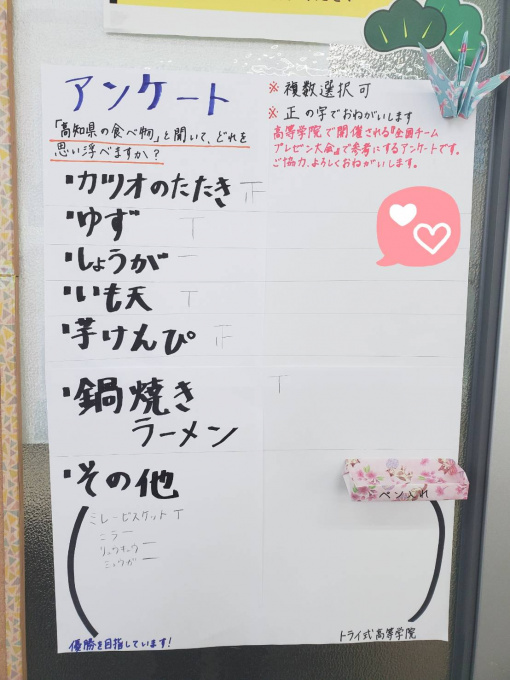 アンケート
「高知県の食べ物」と聞いて、どれを
思い浮べますか？
※ 複数選択可
※ 正の字でおねがいします
高等学院で開催される『全国チーム
プレゼン大会』で参考にするアンケートです。
ご協力、よろしくおねがいします。
・カツオのたたき 正
・ゆず T
・しょうが 一
・いも天 T
・芋けんぴ 正
・鍋焼き T
ラーメン
・その他
ミレービスケット T
ニラ 一
リュウキュウ 一
ミョウガ 一
ペン入れ
優勝を目指しています!
トライ式高等学院